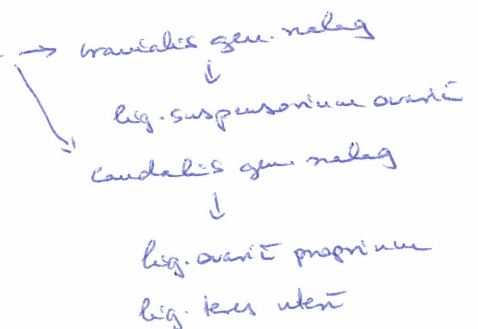 → cranialis gen. szalag
↓
lig. suspensorium ovarii
caudalis gen. szalag
↓
lig. ovarii proprium
lig. teres uteri